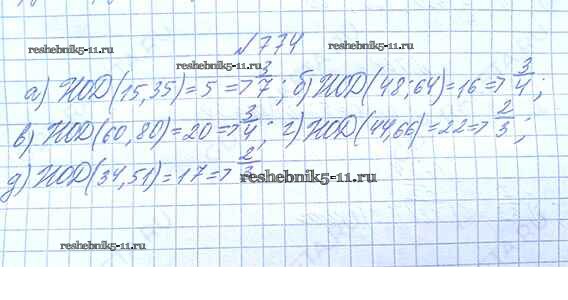 №774
reshebnik5-11.ru reshebnik5-11.ru
а) НОД(15,35)=5=>3/7; б) НОД(48;64)=16=>3/4;
в) НОД(60,80)=20=>3/4; г) НОД(44,66)=22=>2/3;
д) НОД(34,51)=17=>2/3
reshebnik5-11.ru
reshebnik5-11.ru